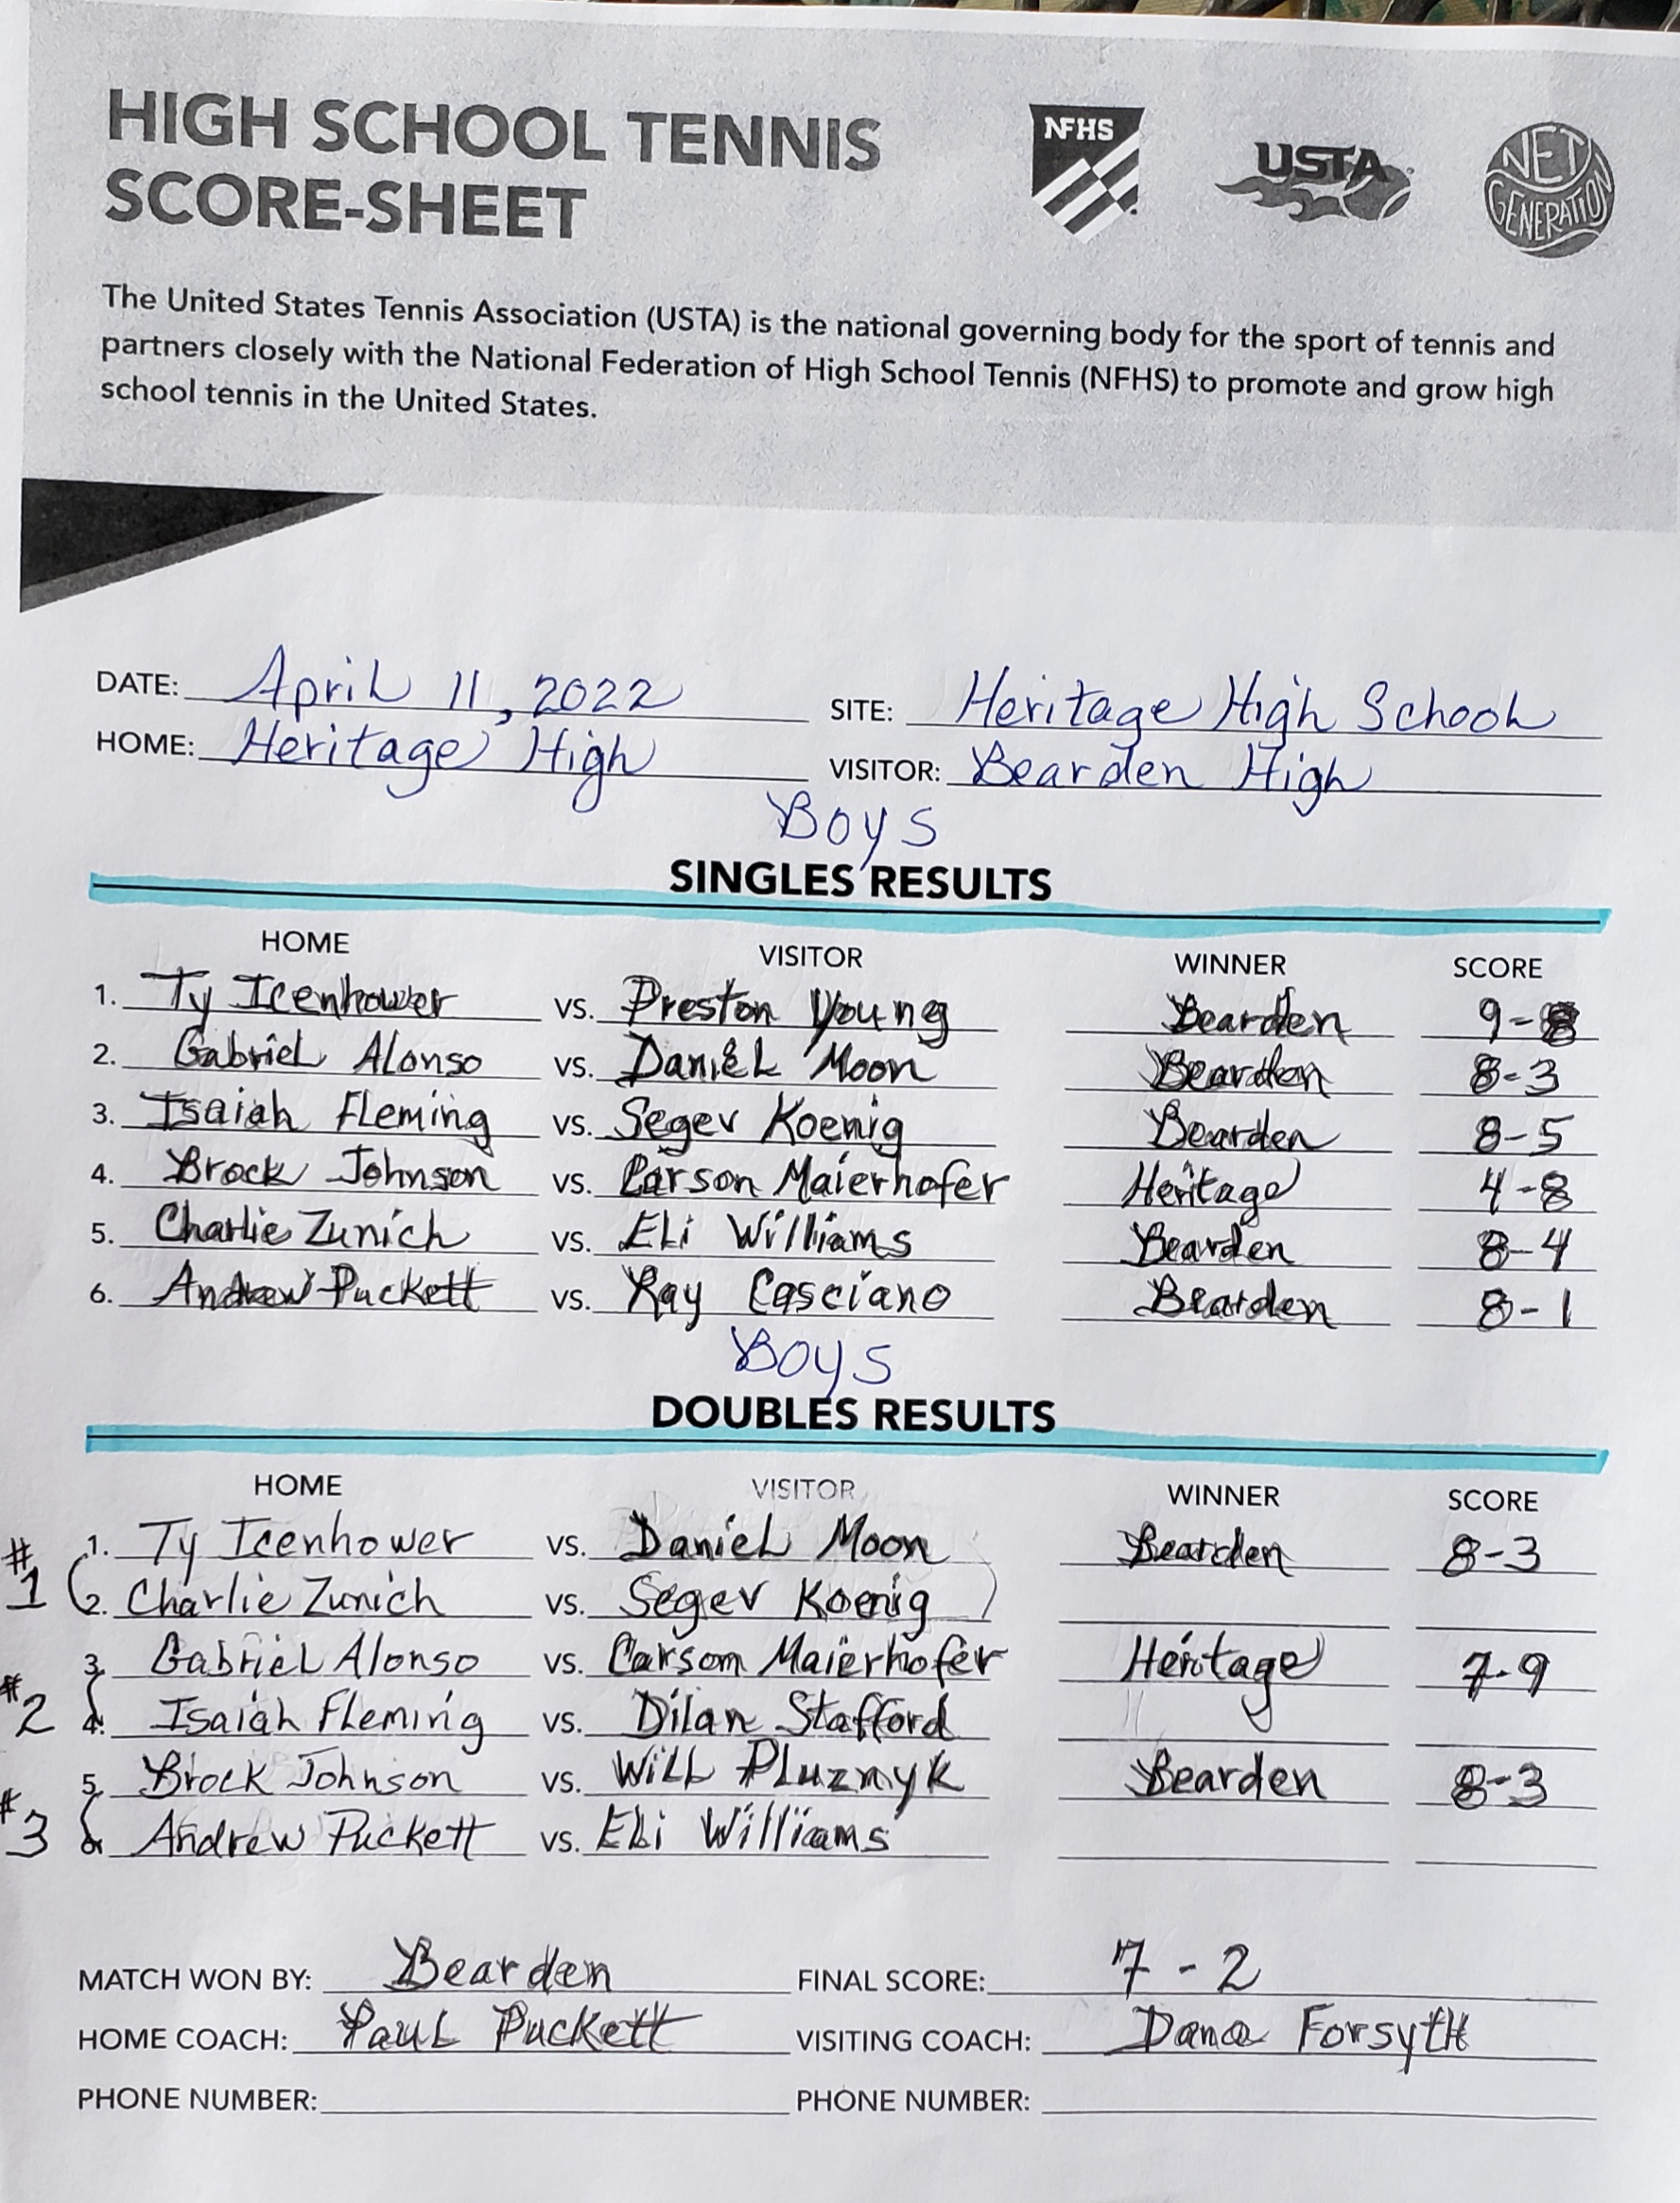 HIGH SCHOOL TENNIS
SCORE-SHEET
NFHS
USTA
NET GENERATION
The United States Tennis Association (USTA) is the national governing body for the sport of tennis and
partners closely with the National Federation of High School Tennis (NFHS) to promote and grow high
school tennis in the United States.
DATE: April 11, 2022 SITE: Heritage High School
HOME: Heritage High VISITOR: Bearden High
Boys
SINGLES RESULTS
HOME VISITOR WINNER SCORE
1. Ty Icenhower VS. Preston Young Bearden 9-8
2. Gabriel Alonso VS. Daniel Moon Bearden 8-3
3. Isaiah Fleming VS. Segev Koenig Bearden 8-5
4. Brock Johnson VS. Carson Maierhofer Heritage 4-8
5. Charlie Zunich VS. Eli Williams Bearden 8-4
6. Andrew Puckett VS. Ray Casciano Bearden 8-1
Boys
DOUBLES RESULTS
HOME VISITOR WINNER SCORE
#1 1. Ty Icenhower VS. Daniel Moon Bearden 8-3
2. Charlie Zunich VS. Segev Koenig
#2 3. Gabriel Alonso VS. Carson Maierhofer Heritage 7-9
4. Isaiah Fleming VS. Dilan Stafford
#3 5. Brock Johnson VS. Will Pluznyk Bearden 8-3
6. Andrew Puckett VS. Eli Williams
MATCH WON BY: Bearden FINAL SCORE: 7-2
HOME COACH: Paul Puckett VISITING COACH: Dana Forsyth
PHONE NUMBER: PHONE NUMBER: